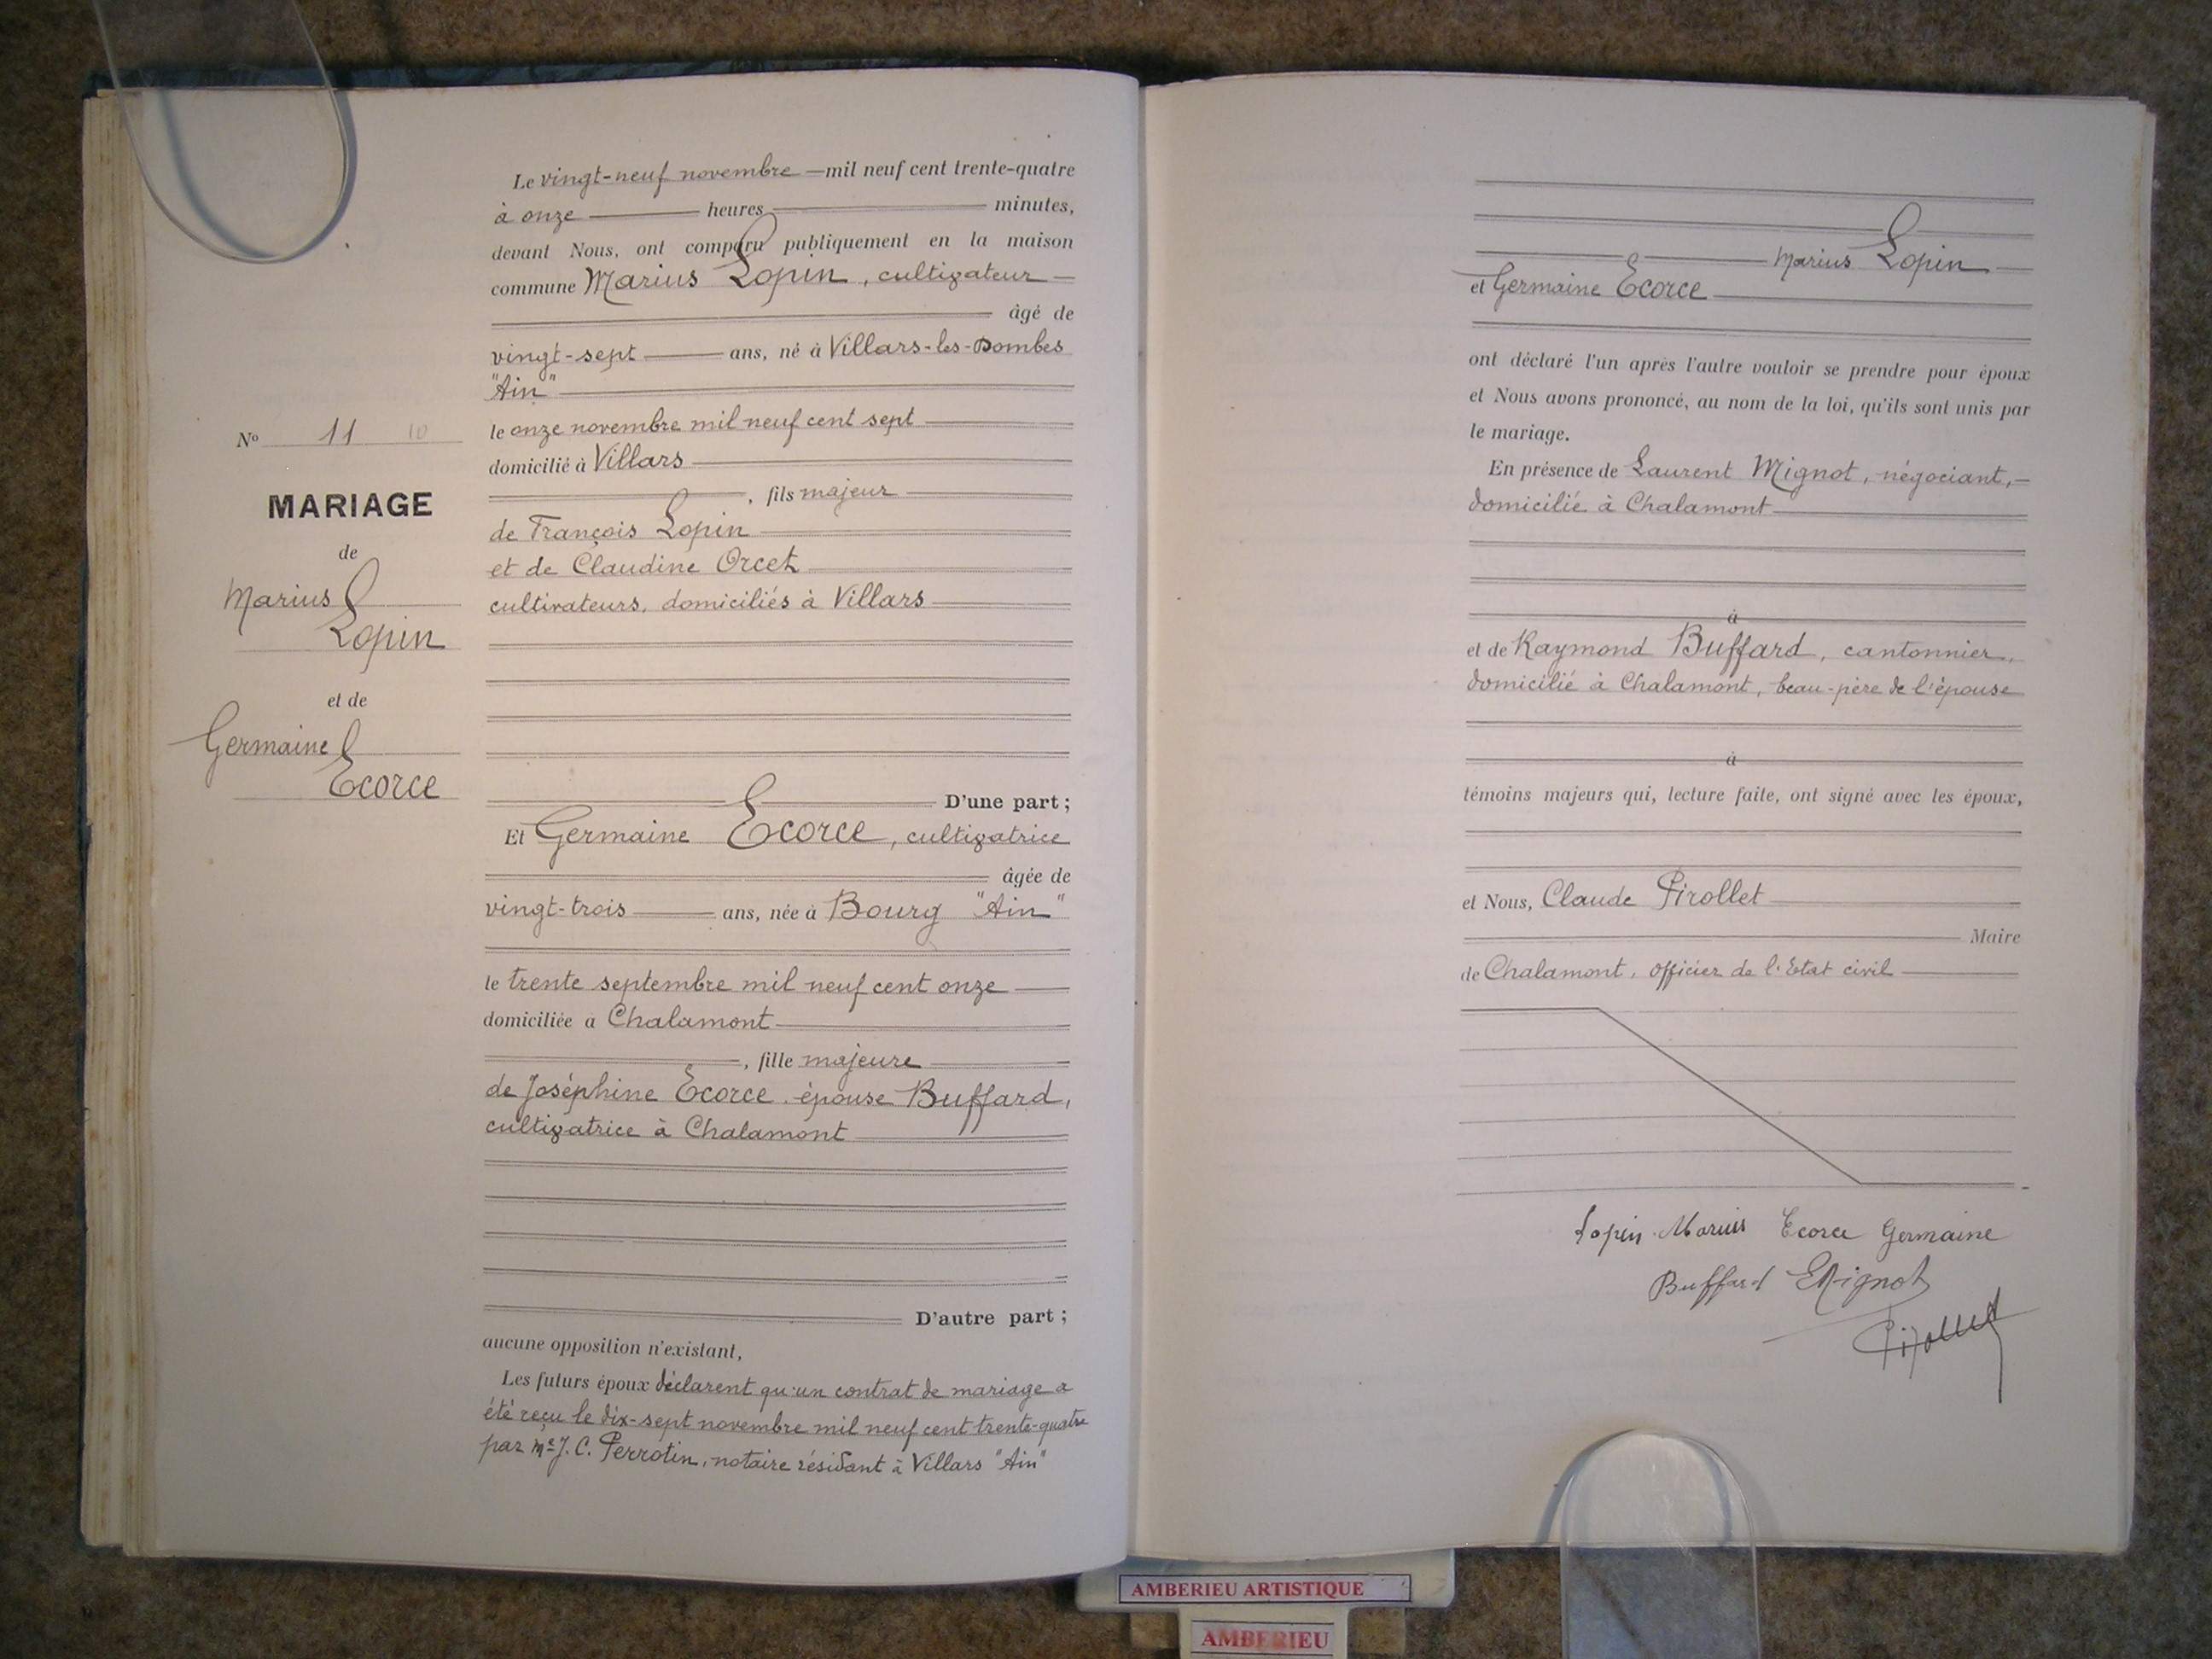 Le vingt-neuf novembre — mil neuf cent trente-quatre
à onze heures minutes,
devant Nous, ont comparu publiquement en la maison
commune Marius Lopin, cultivateur
âgé de
vingt-sept ans, né à Villars-les-Dombes
"Ain"
le onze novembre mil neuf cent sept
domicilié à Villars
, fils majeur
de François Lopin
et de Claudine Orcet
cultivateurs, domiciliés à Villars
D'une part ;
Et Germaine Ecorce, cultivatrice
âgée de
vingt-trois ans, née à Bourg "Ain"
le trente septembre mil neuf cent onze
domiciliée à Chalamont
, fille majeure
de Joséphine Ecorce, épouse Buffard,
cultivatrice à Chalamont
D'autre part ;
aucune opposition n'existant,
Les futurs époux déclarent qu'un contrat de mariage a
été reçu le dix-sept novembre mil neuf cent trente-quatre
par Me J. C. Perrotin, notaire résidant à Villars "Ain"
No 11 10
MARIAGE
de
Marius
Lopin
et de
Germaine
Ecorce
Marius Lopin
et Germaine Ecorce
ont déclaré l'un après l'autre vouloir se prendre pour époux
et Nous avons prononcé, au nom de la loi, qu'ils sont unis par
le mariage.
En présence de Laurent Mignot, négociant,
domicilié à Chalamont
à
et de Raymond Buffard, cantonnier,
domicilié à Chalamont, beau-père de l'épouse
à
témoins majeurs qui, lecture faite, ont signé avec les époux,
et Nous, Claude Pirollet
Maire
de Chalamont, officier de l'Etat civil
Lopin Marius Ecorce Germaine
Buffard Mignot
Pirollet
AMBERIEU ARTISTIQUE
AMBERIEU